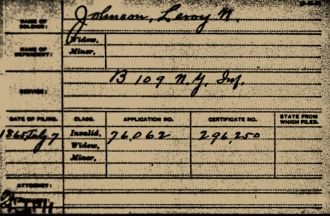 NAME OF SOLDIER:
Johnson, Leroy M.
NAME OF DEPENDENT:
Widow,
Minor,
SERVICE:
B 109 N.Y. Inf.
DATE OF FILING.
CLASS.
APPLICATION NO.
CERTIFICATE NO.
STATE FROM WHICH FILED.
1865 July 7
Invalid,
76,062
296,250
Widow,
Minor,
ATTORNEY: